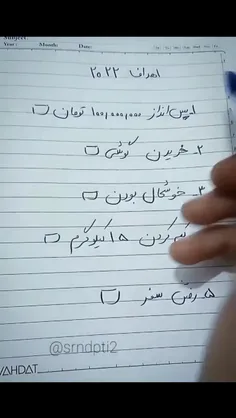 Year: Month: Date:
اهداف ۲۰۲۲
۱. پس‌انداز ۱۰۰,۰۰۰,۰۰۰ تومان
۲. خریدن گوشی
۳. خوشحال بودن
کم کردن ۱۵ کیلوگرم
۵. رفتن سفر
@srndpti2
VAHDAT